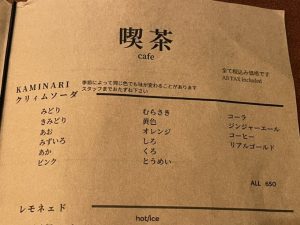 喫茶
cafe
全て税込み価格です
All TAX included
KAMINARI
クリィムソーダ
季節によって同じ色でも味が変わることがあります
スタッフまでおたずね下さい
みどり
きみどり
あお
みずいろ
あか
ピンク
むらさき
黄色
オレンジ
しろ
くろ
とうめい
コーラ
ジンジャーエール
コーヒー
リアルゴールド
ALL 650
レモネェド
hot/ice